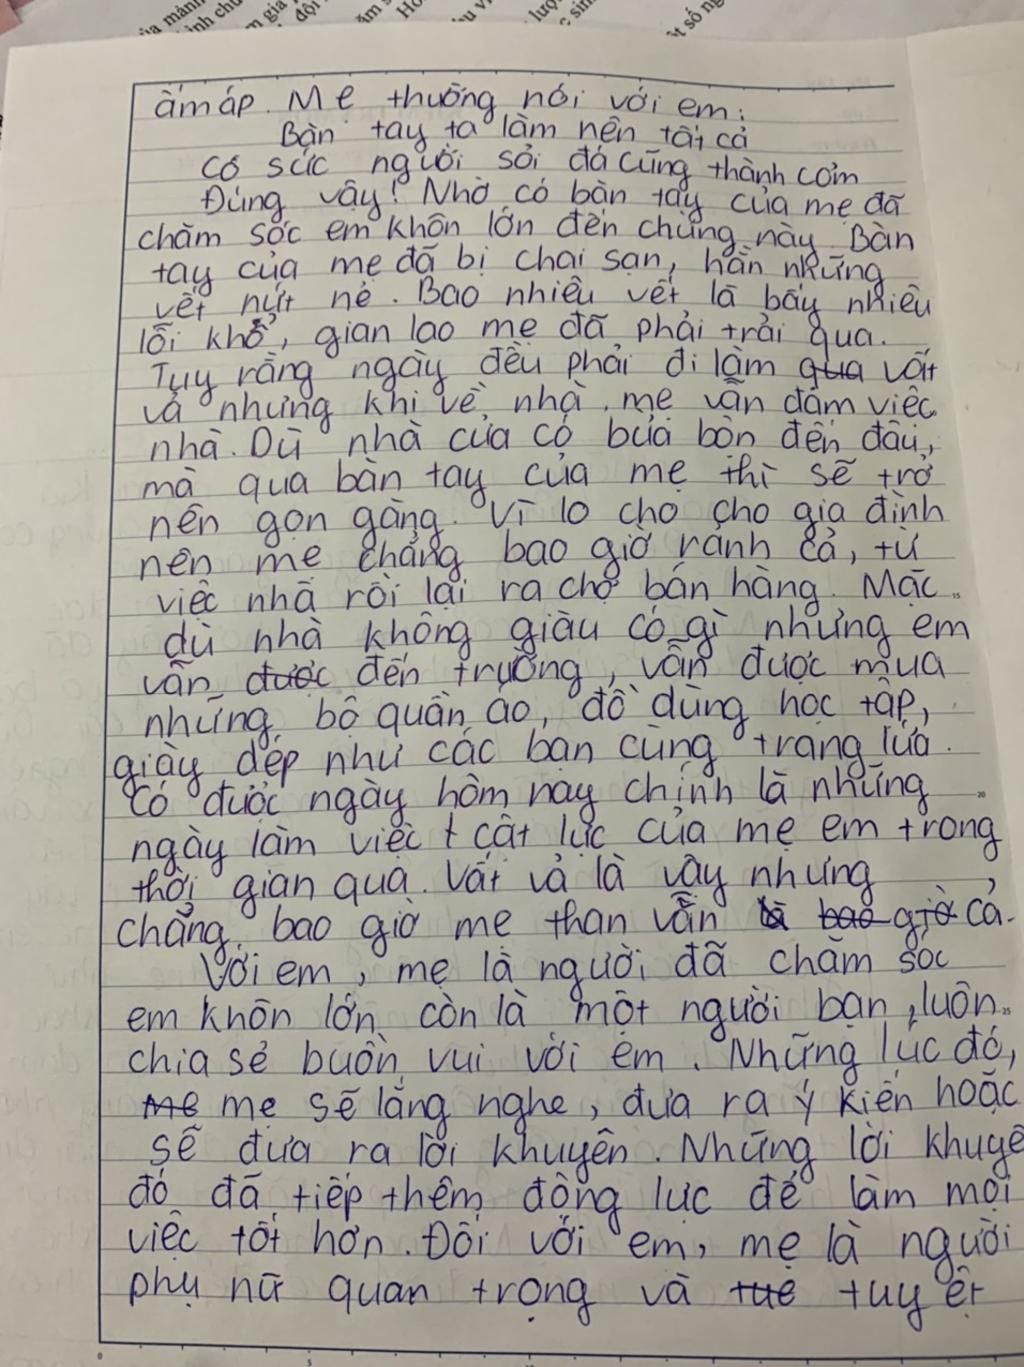 ấm áp. Mẹ thường nói với em:
Bàn tay ta làm nên tất cả
Có sức người sỏi đá cũng thành cơm
Đúng vậy! Nhờ có bàn tay của mẹ đã
chăm sóc em khôn lớn đến chừng này. Bàn
tay của mẹ đã bị chai sạn, hằn những
vết nứt nẻ. Bao nhiêu vết là bấy nhiêu
lỗi khổ, gian lao mẹ đã phải trải qua.
Tuy rằng ngày đều phải đi làm qua vất
vả nhưng khi về nhà, mẹ vẫn đảm việc
nhà. Dù nhà cửa có bừa bộn đến đâu,
mà qua bàn tay của mẹ thì sẽ trở
nên gọn gàng. Vì lo cho cho gia đình
nên mẹ chẳng bao giờ rảnh cả, từ
việc nhà rồi lại ra chợ bán hàng. Mặc
dù nhà không giàu có gì nhưng em
vẫn được đến trường, vẫn được mua
những bộ quần áo, đồ dùng học tập,
giày dép như các bạn cùng trang lứa.
Có được ngày hôm nay chính là những
ngày làm việc t cật lực của mẹ em trong
thời gian qua. Vất vả là vậy nhưng
chẳng bao giờ mẹ than vẫn bao giờ cả.
Với em, mẹ là người đã chăm sóc
em khôn lớn còn là một người bạn, luôn
chia sẻ buồn vui với em. Những lúc đó,
me mẹ sẽ lắng nghe, đưa ra ý kiến hoặc
sẽ đưa ra lời khuyên. Những lời khuyê
đó đã tiếp thêm động lực để làm mọi
việc tốt hơn. Đối với em, mẹ là người
phụ nữ quan trọng và tuê tuyệt